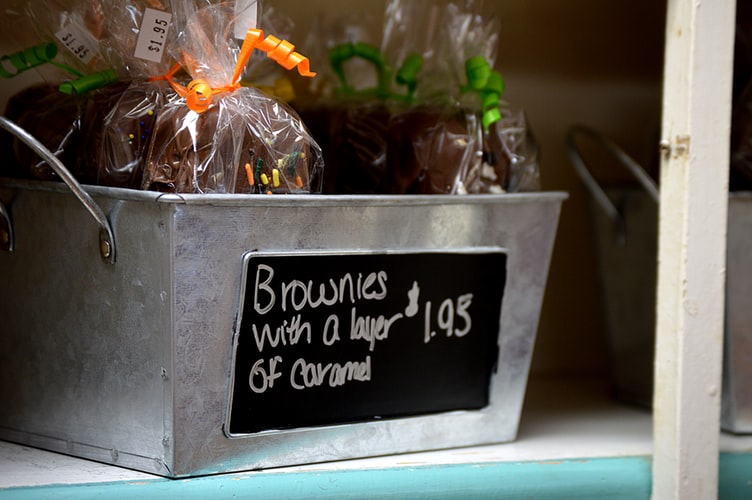 $1.95
$1.95
Brownies
with a layer $1.95
of caramel